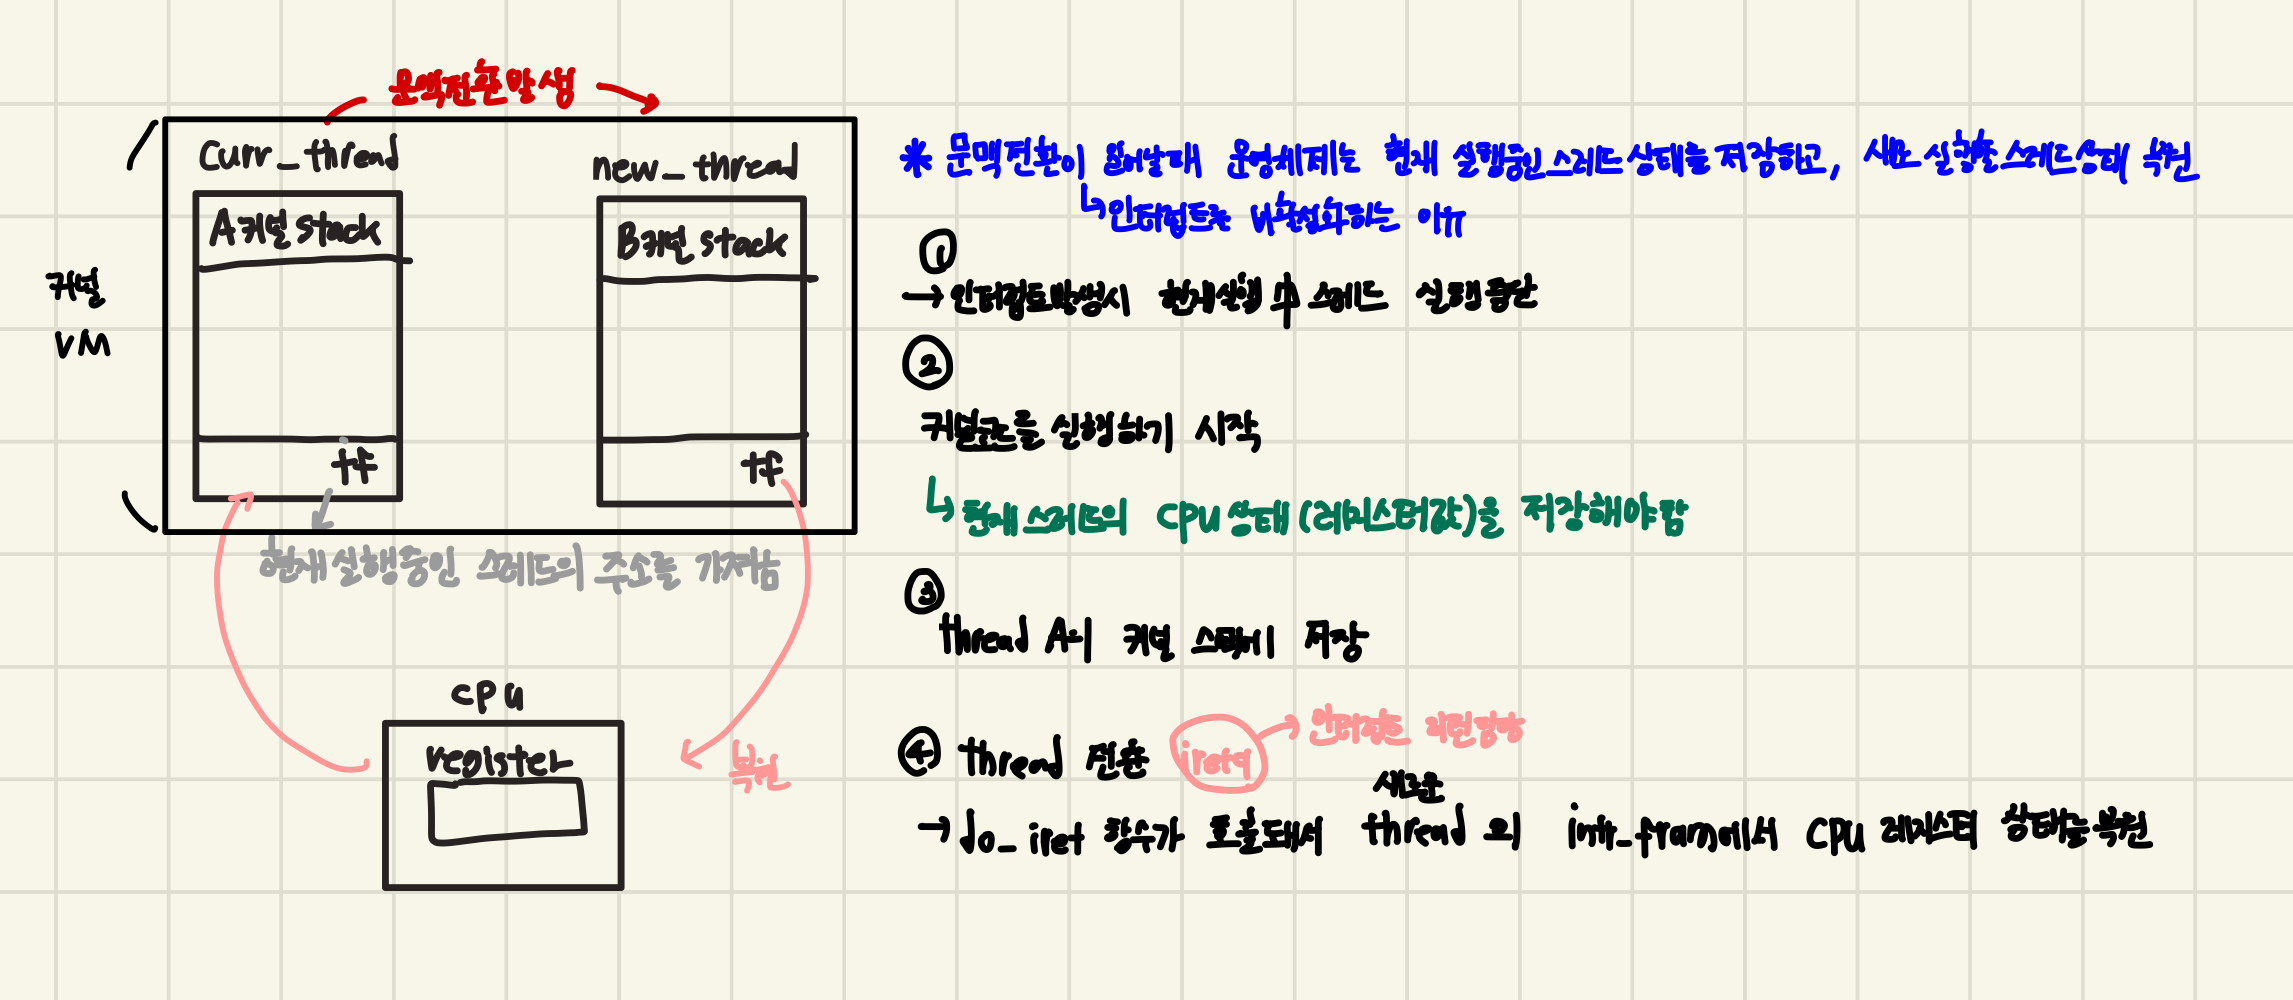 문맥전환 발생
curr_thread
new_thread
A커널 stack
B커널 stack
커널
VM
tf
tf
현재 실행중인 스레드의 주소를 가져옴
cpu
register
복원
* 문맥전환이 일어날때 운영체제는 현재 실행중인 스레드 상태를 저장하고, 새로 실행할 스레드 상태 복원
↳ 인터럽트를 비활성화하는 이유
①
→ 인터럽트 발생시 현재 실행 中 스레드 실행 중단
②
커널코드를 실행하기 시작
↳ 현재 스레드의 CPU 상태 (레지스터값)을 저장해야함
③
thread A의 커널 스택에 저장
④ thread 전환 iretq → 인터럽트 리턴
새로운
→ do_iret 함수가 호출돼서 thread 의 intr_frame에서 CPU 레지스터 상태를 복원